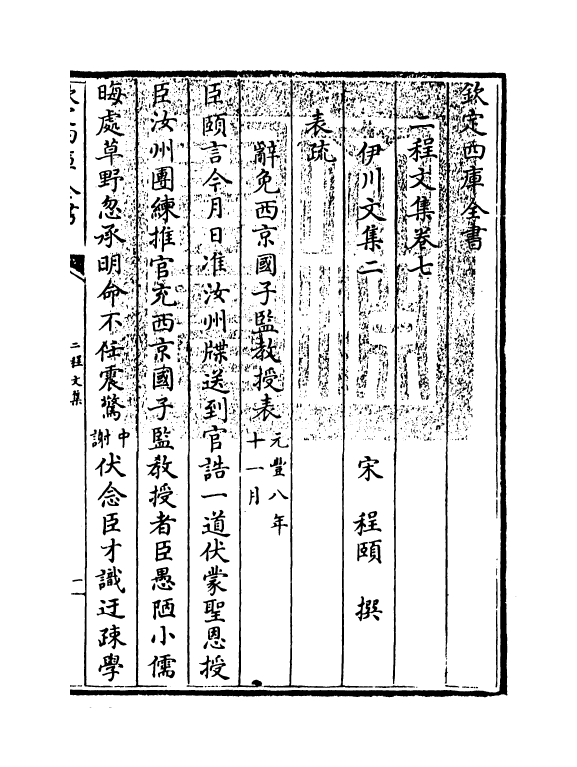 欽定四庫全書
二程文集卷七
伊川文集二　宋　程頤　撰
表疏
辭免西京國子監教授表元豐八年十一月
臣頤言今月日准汝州牒送到官誥一道伏蒙聖恩授
臣汝州團練推官充西京國子監教授者臣愚陋小儒
晦處草野忽承明命不任震驚中謝伏念臣才識迂疎學
二程文集